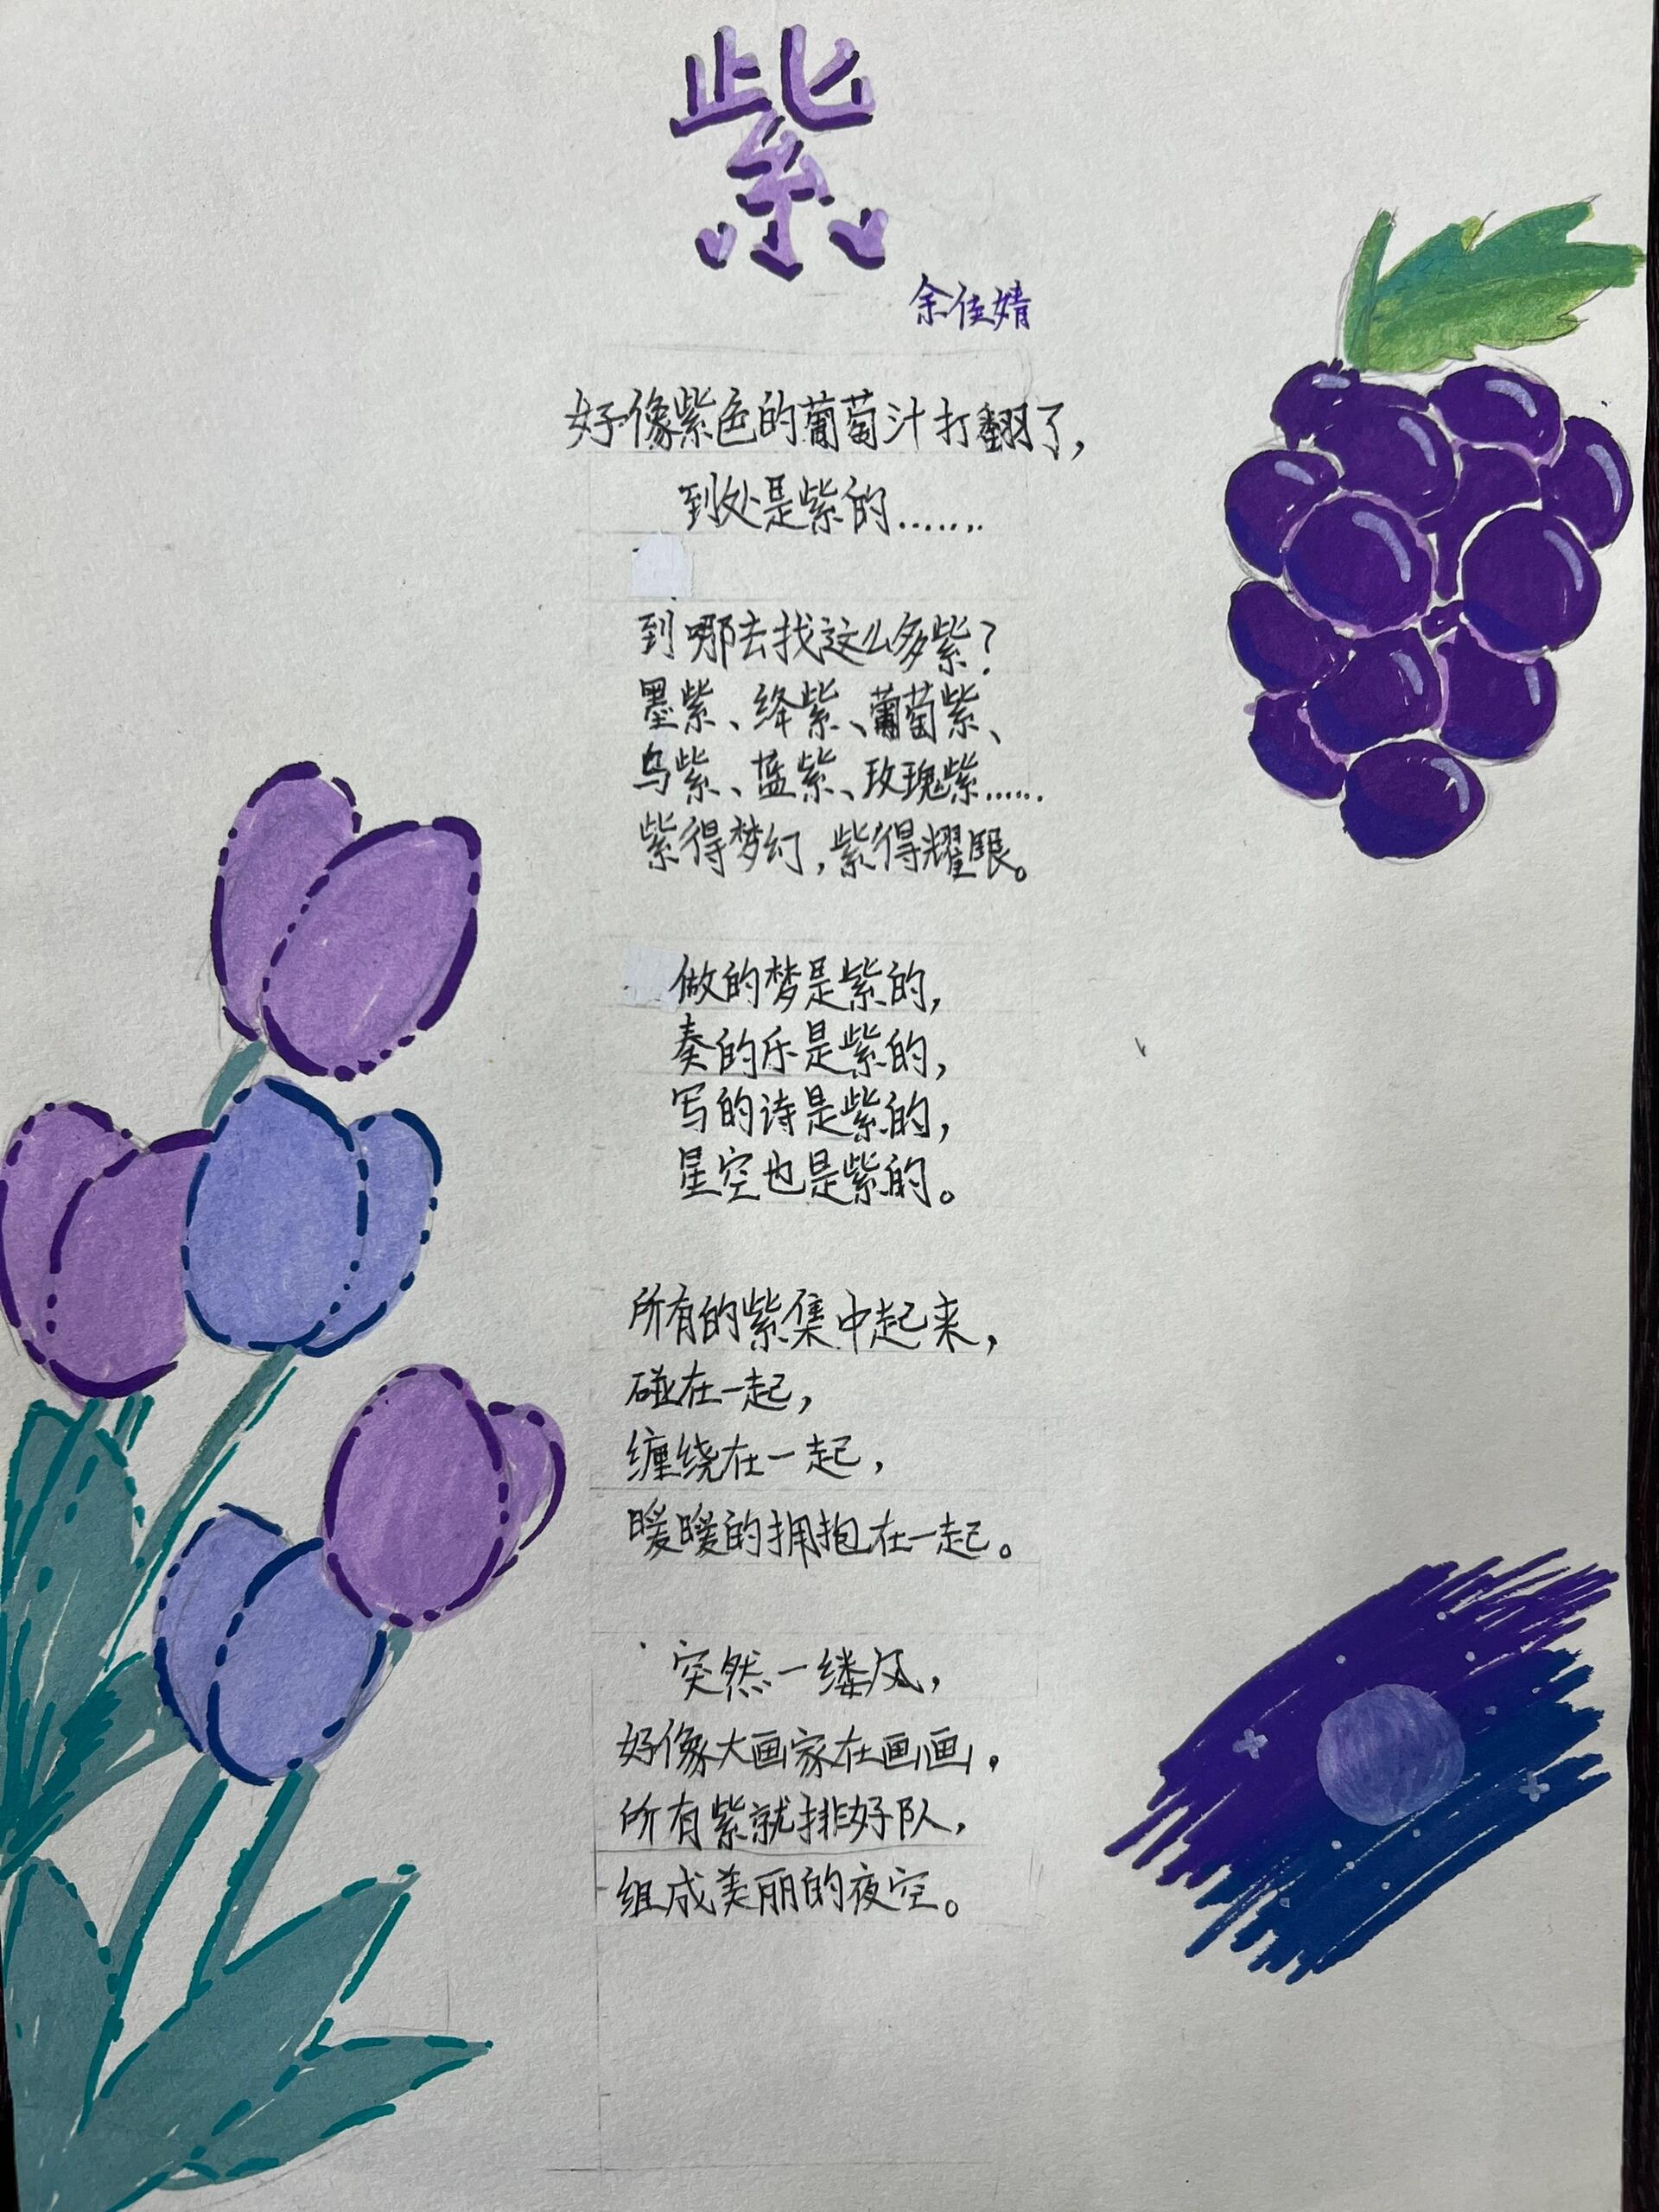 紫
余佳婧
好像紫色的葡萄汁打翻了，
到处是紫的……
到哪去找这么多紫？
墨紫、绛紫、葡萄紫、
乌紫、蓝紫、玫瑰紫……
紫得梦幻，紫得耀眼。
做的梦是紫的，
奏的乐是紫的，
写的诗是紫的，
星空也是紫的。
所有的紫集中起来，
碰在一起，
缠绕在一起，
暖暖的拥抱在一起。
突然一缕风，
好像大画家在画画，
所有紫就排好队，
组成美丽的夜空。